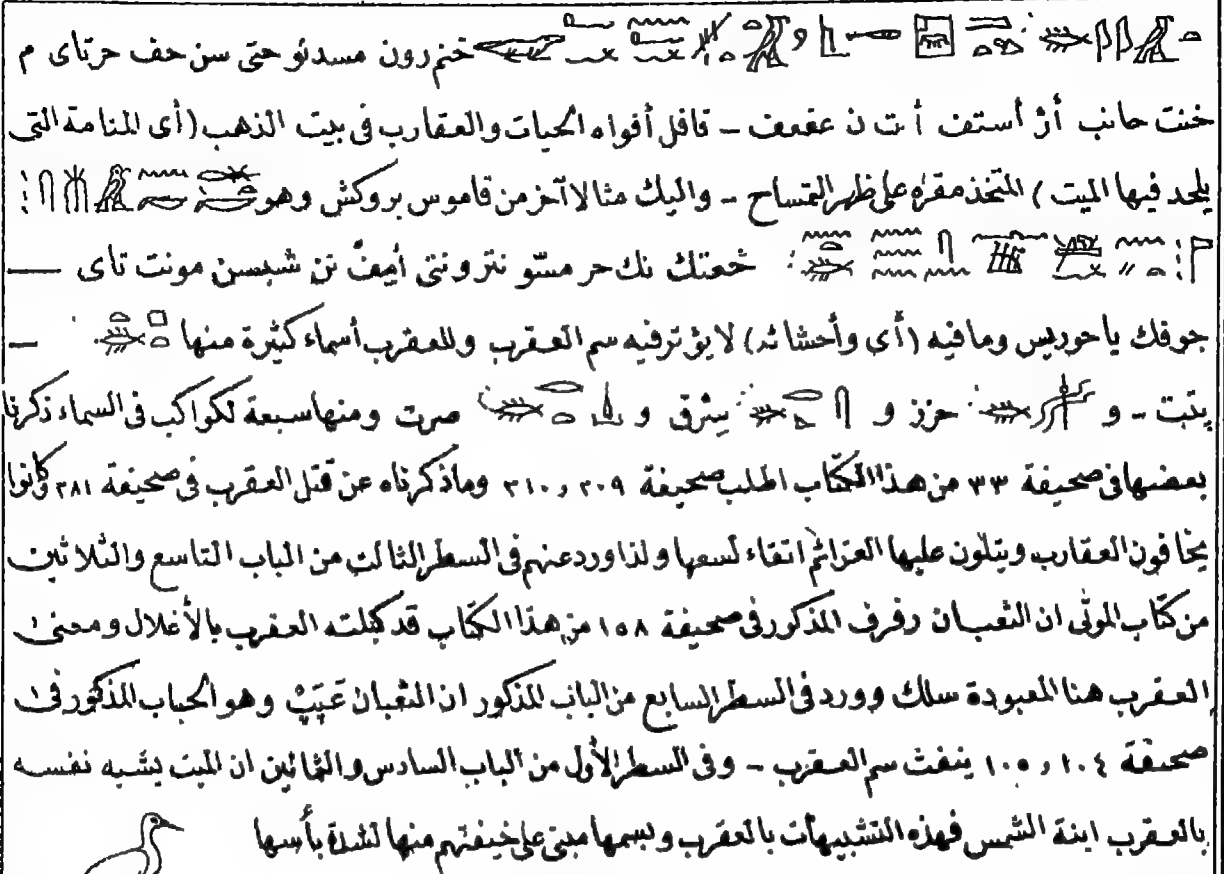 خنم رون مسدئو حتى سن حف حرتاى م
خنت حانب أرّ أستف أ تت ن عقعف - قافل أفواه الحيات والعقارب فى بيت الذهب (أى المنامة التى
يلحد فيها الميت) المتخذ مقره على ظهر التمساح - واليك مثالا آخر من قاموس بروكش وهو
خعتك نك حر مستو نترونتى أيمفّ تن شبسن مونت تاى —
جوفك ياحوريس ومافيه (أى وأحشائه) لايؤثرفيه سم العقرب وللعقرب أسماء كثيرة منها —
پتبت - و حرزز و سرق و صرت ومنها سبعة لكواكب فى السماء ذكرنا
بعضها فى صحيفة ٣٣ من هذا الكتاب اطلب صحيفة ٢٠٩ و ٣١٠ وماذكرناه عن قتل العقرب فى صحيفة ٢٨١ وكانوا
يخافون العقارب ويتلون عليها العزائم اتقاء لسعها ولذا ورد عنهم فى السطر الثالث من الباب التاسع والثلاثين
من كتاب الموتى ان الثعبان رفرف المذكور فى صحيفة ١٥٨ من هذا الكتاب قد كبلته العقرب بالأغلال ومعنى
العقرب هنا المعبودة سلك وورد فى السطر السابع من الباب المذكور ان الثعبان عَبَبْ وهو الحباب المذكور فى
صحيفة ١٠٤ و ١٠٥ ينفث سم العقرب - وفى السطر الأول من الباب السادس والثمانين ان الميت يشبه نفسه
بالعقرب ابنة الشمس فهذه التشبيهات بالعقرب وبسمها مبنى على خيفتهم منها لشدة بأسها